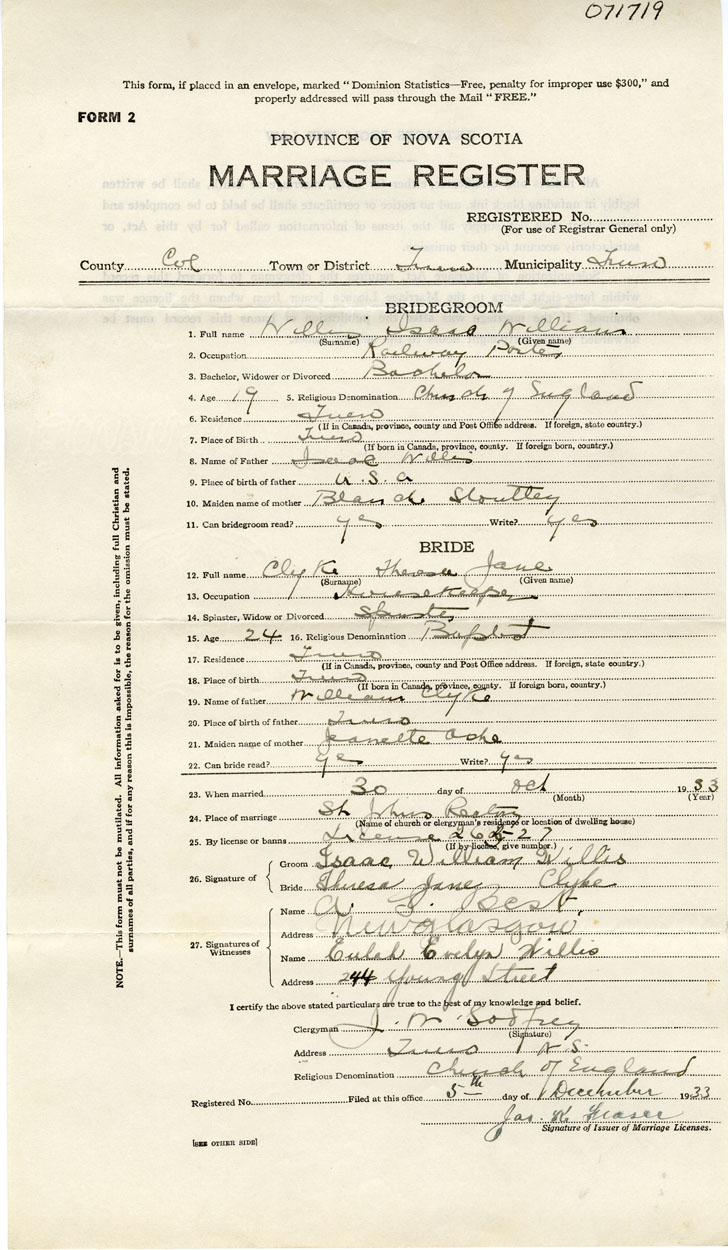 071719
This form, if placed in an envelope, marked "Dominion Statistics—Free, penalty for improper use $300," and
properly addressed will pass through the Mail "FREE."
FORM 2
PROVINCE OF NOVA SCOTIA
MARRIAGE REGISTER
REGISTERED No.
(For use of Registrar General only)
County Col Town or District Truro Municipality Truro
BRIDEGROOM
1. Full name Willis Isaac William
(Surname) (Given name)
2. Occupation Railway Porter
3. Bachelor, Widower or Divorced Bachelor
4. Age 19 5. Religious Denomination Church of England
6. Residence Truro
(If in Canada, province, county and Post Office address. If foreign, state country.)
7. Place of Birth Truro
(If born in Canada, province, county. If foreign born, country.)
8. Name of Father Isaac Willis
9. Place of birth of father U.S.A
10. Maiden name of mother Blanch
11. Can bridegroom read? yes Write? yes
BRIDE
12. Full name Clyke Theresa Jane
(Surname) (Given name)
13. Occupation Housekeeper
14. Spinster, Widow or Divorced Spinster
15. Age 24 16. Religious Denomination Baptist
17. Residence Truro
(If in Canada, province, county and Post Office address. If foreign, state country.)
18. Place of birth Truro
(If born in Canada, province, county. If foreign born, country.)
19. Name of father William Clyke
20. Place of birth of father Truro
21. Maiden name of mother Jeanette
22. Can bride read? yes Write? yes
23. When married 30 day of Oct 1933
(Month) (Year)
24. Place of marriage St Johns Rectory
(Name of church or clergyman's residence or location of dwelling house)
25. By license or banns License
(If by license, give number.)
26. Signature of
Groom Isaac William Willis
Bride Theresa Jane Clyke
27. Signatures of Witnesses
Name A. Best
Address New Glasgow
Name Eulah Evelyn Willis
Address 244 Young Street
I certify the above stated particulars are true to the best of my knowledge and belief.
Clergyman J. W. Godfrey
(Signature)
Address Truro N.S.
Religious Denomination Church of England
Registered No. Filed at this office 5th day of December 1933
Jas. K. Fraser
Signature of Issuer of Marriage Licenses.
[SEE OTHER SIDE]
NOTE.—This form must not be mutilated. All information asked for is to be given, including full Christian and
surnames of all parties, and if for any reason this is impossible, the reason for the omission must be stated.